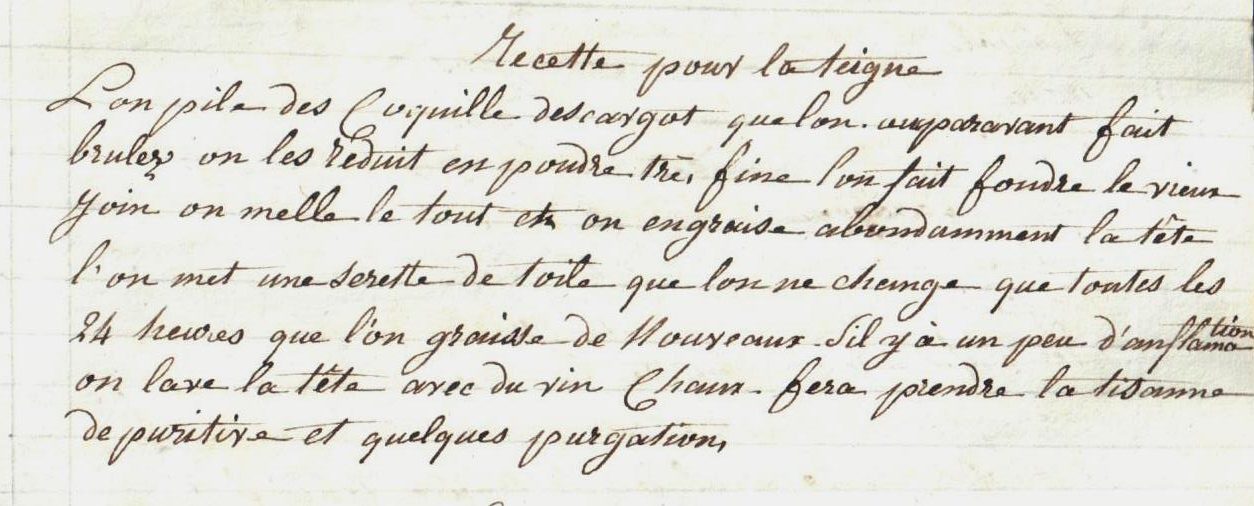 Recette pour la teigne
L'on pile des Coquille descargot que lon auparavant fait
brulez on les reduit en poudre trè, fine l'on fait fondre le vieux
join on melle le tout et on engraise abondamment la tête
l'on met une serette de toile que lon ne change que toutes les
24 heures que l'on graisse de Nouveaux. S'il y à un peu d'anflamation
on lave la tête avec du vin Chaux. fera prendre la tisanne
depuritive et quelques purgation,